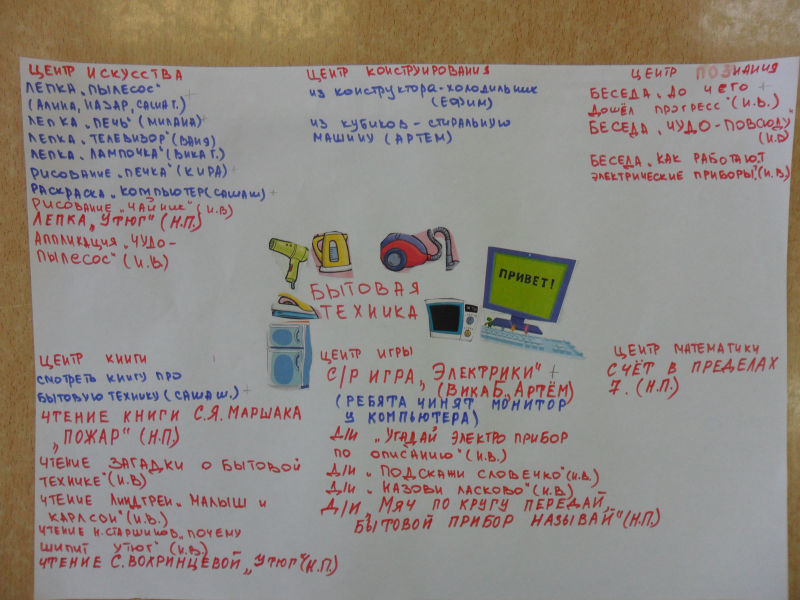 ЦЕНТР ИСКУССТВА
ЛЕПКА „ПЫЛЕСОС"
(АЛИНА, НАЗАР, САША Г.)
ЛЕПКА „ПЕЧЬ" (МИЛАНА)
ЛЕПКА „ТЕЛЕВИЗОР" (ВАНЯ)
ЛЕПКА „ЛАМПОЧКА" (ВИКА Г.)
РИСОВАНИЕ „ПЕЧКА" (КИРА)
РАСКРАСКА „КОМПЬЮТЕР" (САША Ш)
РИСОВАНИЕ „ЧАЙНИК" (И.В)
ЛЕПКА „УТЮГ" (Н.П.)
АППЛИКАЦИЯ „ЧУДО-
ПЫЛЕСОС" (И.В)
ЦЕНТР КОНСТРУИРОВАНИЯ
ИЗ КОНСТРУКТОРА-ХОЛОДИЛЬНИК
(ЕФИМ)
ИЗ КУБИКОВ - СТИРАЛЬНУЮ
МАШИНУ (АРТЕМ)
ЦЕНТР ПОЗНАНИЯ
БЕСЕДА „ДО ЧЕГО
ДОШЁЛ ПРОГРЕСС" (И.В.)
БЕСЕДА „ЧУДО-ПОВСЮДУ"
(И.В)
БЕСЕДА „КАК РАБОТАЮТ
ЭЛЕКТРИЧЕСКИЕ ПРИБОРЫ" (И.В)
ПРИВЕТ!
БЫТОВАЯ
ТЕХНИКА
ЦЕНТР КНИГИ
СМОТРЕТЬ КНИГУ ПРО
БЫТОВУЮ ТЕХНИКУ (САША Ш.)
ЧТЕНИЕ КНИГИ С.Я. МАРШАКА
„ПОЖАР" (Н.П)
ЧТЕНИЕ ЗАГАДКИ О БЫТОВОЙ
ТЕХНИКЕ" (И.В)
ЧТЕНИЕ ЛИНДГРЕН „МАЛЫШ И
КАРЛСОН" (И.В.)
ЧТЕНИЕ Н. СТАРШИНОВ „ПОЧЕМУ
ШИПИТ УТЮГ" (И.В)
ЧТЕНИЕ С. ВОХРИНЦЕВОЙ „УТЮГ" (Н.П.)
ЦЕНТР ИГРЫ
С/Р ИГРА „ЭЛЕКТРИКИ"
(ВИКА Б., АРТЁМ)
(РЕБЯТА ЧИНЯТ МОНИТОР
У КОМПЬЮТЕРА)
Д/И „УГАДАЙ ЭЛЕКТРОПРИБОР
ПО ОПИСАНИЮ" (И.В.)
Д/И „ПОДСКАЖИ СЛОВЕЧКО" (И.В.)
Д/И „НАЗОВИ ЛАСКОВО" (И.В)
Д/И „МЯЧ ПО КРУГУ ПЕРЕДАЙ,
БЫТОВОЙ ПРИБОР НАЗЫВАЙ" (Н.П.)
ЦЕНТР МАТЕМАТИКИ
СЧЁТ В ПРЕДЕЛАХ
7. (Н.П.)